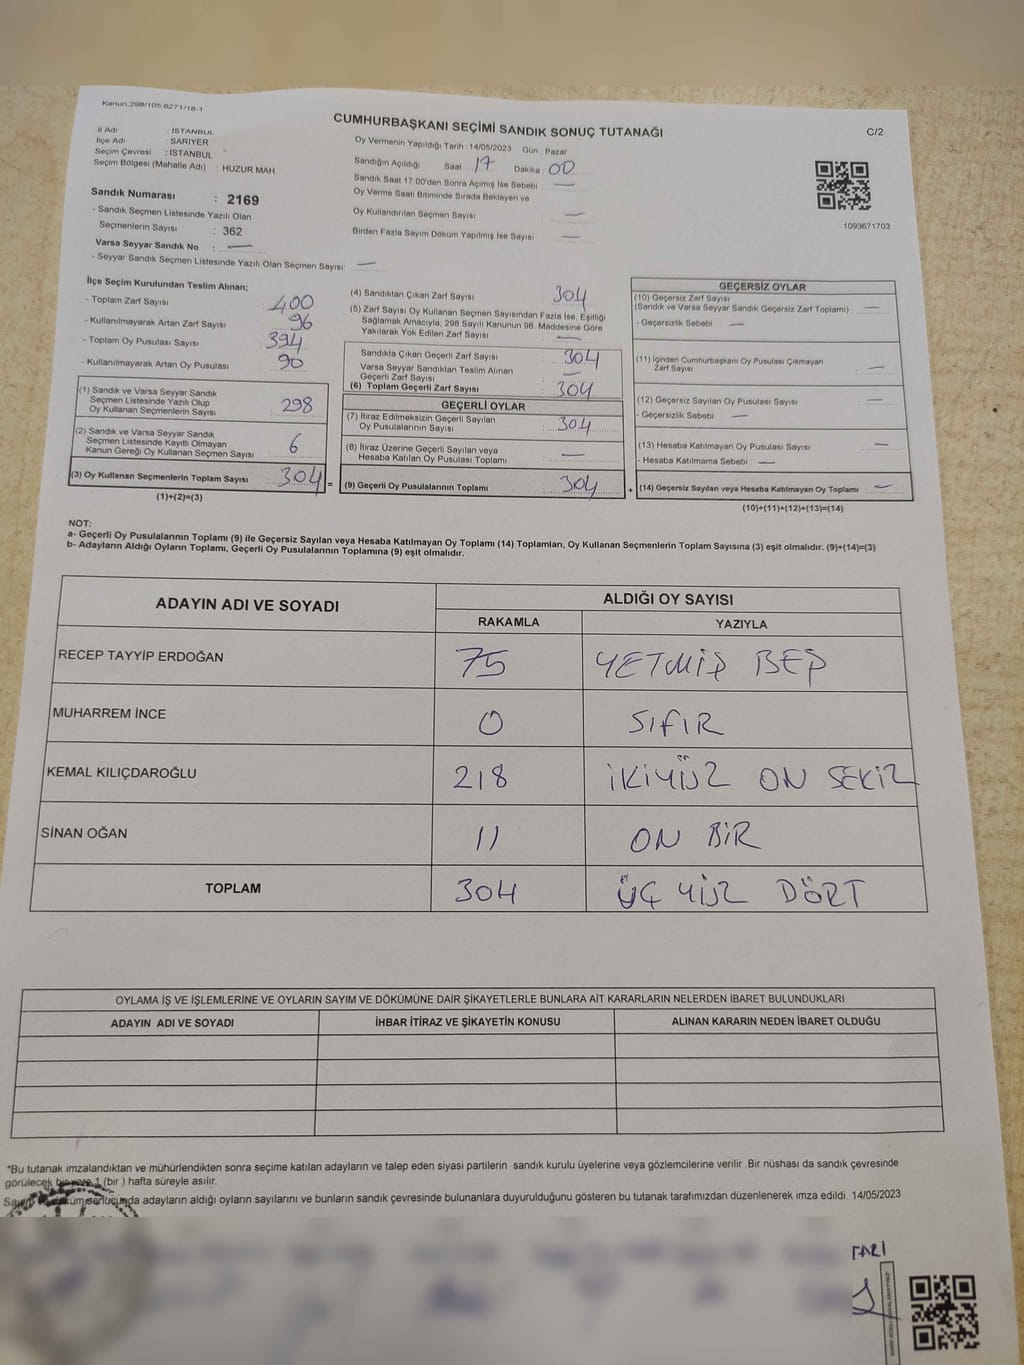 Kanun:298/105,6271/18-1
CUMHURBAŞKANI SEÇİMİ SANDIK SONUÇ TUTANAĞI
C/2
İl Adı : İSTANBUL
İlçe Adı : SARIYER
Seçim Çevresi : İSTANBUL
Seçim Bölgesi (Mahalle Adı) : HUZUR MAH.
Sandık Numarası : 2169
- Sandık Seçmen Listesinde Yazılı Olan
Seçmenlerin Sayısı : 362
Varsa Seyyar Sandık No : —
- Seyyar Sandık Seçmen Listesinde Yazılı Olan Seçmen Sayısı: —
Oy Vermenin Yapıldığı Tarih : 14/05/2023 Gün : Pazar
Sandığın Açıldığı Saat : 17 Dakika : 00
Sandık Saat 17:00'den Sonra Açılmış İse Sebebi : —
Oy Verme Saati Bitiminde Sırada Bekleyen ve
Oy Kullandırılan Seçmen Sayısı : —
Birden Fazla Sayım Döküm Yapılmış İse Sayısı : —
1093671703
İlçe Seçim Kurulundan Teslim Alınan;
- Toplam Zarf Sayısı : 400
- Kullanılmayarak Artan Zarf Sayısı : 96
- Toplam Oy Pusulası Sayısı : 394
- Kullanılmayarak Artan Oy Pusulası : 90
(1) Sandık ve Varsa Seyyar Sandık
Seçmen Listesinde Yazılı Olup
Oy Kullanan Seçmenlerin Sayısı : 298
(2) Sandık ve Varsa Seyyar Sandık
Seçmen Listesinde Kayıtlı Olmayan
Kanun Gereği Oy Kullanan Seçmen Sayısı : 6
(3) Oy Kullanan Seçmenlerin Toplam Sayısı : 304 =
(1)+(2)=(3)
(4) Sandıktan Çıkan Zarf Sayısı : 304
(5) Zarf Sayısı Oy Kullanan Seçmen Sayısından Fazla İse, Eşitliği
Sağlamak Amacıyla, 298 Sayılı Kanunun 98. Maddesine Göre
Yakılarak Yok Edilen Zarf Sayısı : —
Sandıkta Çıkan Geçerli Zarf Sayısı : 304
Varsa Seyyar Sandıktan Teslim Alınan
Geçerli Zarf Sayısı : —
(6) Toplam Geçerli Zarf Sayısı : 304
GEÇERLİ OYLAR
(7) İtiraz Edilmeksizin Geçerli Sayılan
Oy Pusulalarının Sayısı : 304
(8) İtiraz Üzerine Geçerli Sayılan veya
Hesaba Katılan Oy Pusulası Toplamı : —
(9) Geçerli Oy Pusulalarının Toplamı : 304 +
GEÇERSİZ OYLAR
(10) Geçersiz Zarf Sayısı
(Sandık ve Varsa Seyyar Sandık Geçersiz Zarf Toplamı) : —
- Geçersizlik Sebebi : —
(11) İçinden Cumhurbaşkanı Oy Pusulası Çıkmayan
Zarf Sayısı : —
(12) Geçersiz Sayılan Oy Pusulası Sayısı : —
- Geçersizlik Sebebi : —
(13) Hesaba Katılmayan Oy Pusulası Sayısı : —
- Hesaba Katılmama Sebebi : —
(14) Geçersiz Sayılan veya Hesaba Katılmayan Oy Toplamı : —
(10)+(11)+(12)+(13)=(14)
NOT:
a- Geçerli Oy Pusulalarının Toplamı (9) ile Geçersiz Sayılan veya Hesaba Katılmayan Oy Toplamı (14) Toplamları, Oy Kullanan Seçmenlerin Toplam Sayısına (3) eşit olmalıdır. (9)+(14)=(3)
b- Adayların Aldığı Oyların Toplamı, Geçerli Oy Pusulalarının Toplamına (9) eşit olmalıdır.
ADAYIN ADI VE SOYADI ALDIĞI OY SAYISI
RAKAMLA YAZIYLA
RECEP TAYYİP ERDOĞAN 75 YETMİŞ BEŞ
MUHARREM İNCE 0 SIFIR
KEMAL KILIÇDAROĞLU 218 İKİYÜZ ON SEKİZ
SİNAN OĞAN 11 ON BİR
TOPLAM 304 ÜÇ YÜZ DÖRT
OYLAMA İŞ VE İŞLEMLERİNE VE OYLARIN SAYIM VE DÖKÜMÜNE DAİR ŞİKAYETLERLE BUNLARA AİT KARARLARIN NELERDEN İBARET BULUNDUKLARI
ADAYIN ADI VE SOYADI İHBAR İTİRAZ VE ŞİKAYETİN KONUSU ALINAN KARARIN NEDEN İBARET OLDUĞU
*Bu tutanak imzalandıktan ve mühürlendikten sonra seçime katılan adayların ve talep eden siyasi partilerin sandık kurulu üyelerine veya gözlemcilerine verilir. Bir nüshası da sandık çevresinde
görülecek bir yere 1 (bir ) hafta süreyle asılır.
Sayım ve döküm sonucunda adayların aldığı oyların sayılarını ve bunların sandık çevresinde bulunanlara duyurulduğunu gösteren bu tutanak tarafımızdan düzenlenerek imza edildi. 14/05/2023